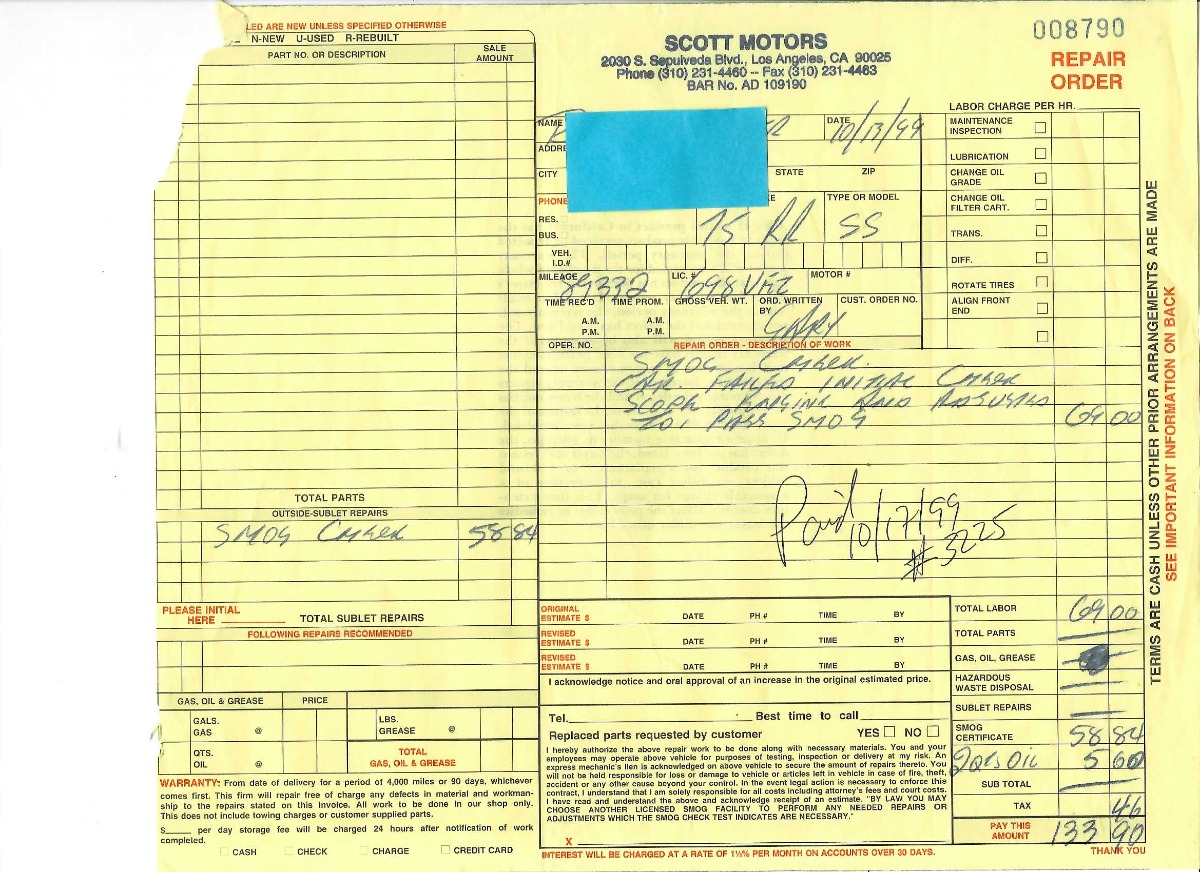 LED ARE NEW UNLESS SPECIFIED OTHERWISE
N-NEW U-USED R-REBUILT
PART NO. OR DESCRIPTION
SALE AMOUNT
TOTAL PARTS
OUTSIDE-SUBLET REPAIRS
SMOG CHECK 58 84
PLEASE INITIAL HERE
TOTAL SUBLET REPAIRS
FOLLOWING REPAIRS RECOMMENDED
GAS, OIL & GREASE PRICE
GALS. GAS @
LBS. GREASE @
QTS. OIL @
TOTAL GAS, OIL & GREASE
WARRANTY: From date of delivery for a period of 4,000 miles or 90 days, whichever
comes first. This firm will repair free of charge any defects in material and workman-
ship to the repairs stated on this invoice. All work to be done in our shop only.
This does not include towing charges or customer supplied parts.
$ per day storage fee will be charged 24 hours after notification of work
completed.
CASH CHECK CHARGE CREDIT CARD
SCOTT MOTORS
2030 S. Sepulveda Blvd., Los Angeles, CA 90025
Phone (310) 231-4460 -- Fax (310) 231-4463
BAR No. AD 109190
008790
REPAIR
ORDER
NAME
DATE 10/13/99
ADDRE
CITY STATE ZIP
PHONE
RES.
BUS.
TYPE OR MODEL
75 RR SS
VEH. I.D.#
MILEAGE 89332 LIC. # 698 MOTOR #
TIME REC'D TIME PROM. GROSS VEH. WT. ORD. WRITTEN BY GARY CUST. ORDER NO.
A.M. A.M.
P.M. P.M.
OPER. NO. REPAIR ORDER - DESCRIPTION OF WORK
SMOG CHECK.
CAR FAILED INITIAL CHECK
SCOPE ENGINE AND ADJUSTED
TO PASS SMOG 69 00
Paid
10/17/99
# 3225
LABOR CHARGE PER HR.
MAINTENANCE INSPECTION
LUBRICATION
CHANGE OIL GRADE
CHANGE OIL FILTER CART.
TRANS.
DIFF.
ROTATE TIRES
ALIGN FRONT END
ORIGINAL ESTIMATE $ DATE PH # TIME BY
REVISED ESTIMATE $ DATE PH # TIME BY
REVISED ESTIMATE $ DATE PH # TIME BY
I acknowledge notice and oral approval of an increase in the original estimated price.
Tel. Best time to call
Replaced parts requested by customer YES NO
I hereby authorize the above repair work to be done along with necessary materials. You and your
employees may operate above vehicle for purposes of testing, inspection or delivery at my risk. An
express mechanic's lien is acknowledged on above vehicle to secure the amount of repairs thereto. You
will not be held responsible for loss or damage to vehicle or articles left in vehicle in case of fire, theft,
accident or any other cause beyond your control. In the event legal action is necessary to enforce this
contract, I understand that I am solely responsible for all costs including attorney's fees and court costs.
I have read and understand the above and acknowledge receipt of an estimate. "BY LAW YOU MAY
CHOOSE ANOTHER LICENSED SMOG FACILITY TO PERFORM ANY NEEDED REPAIRS OR
ADJUSTMENTS WHICH THE SMOG CHECK TEST INDICATES ARE NECESSARY."
X
INTEREST WILL BE CHARGED AT A RATE OF 1½% PER MONTH ON ACCOUNTS OVER 30 DAYS.
TOTAL LABOR 69 00
TOTAL PARTS
GAS, OIL, GREASE
HAZARDOUS WASTE DISPOSAL
SUBLET REPAIRS
SMOG CERTIFICATE 58 84
2 qts Oil 5 60
SUB TOTAL
TAX 46
PAY THIS AMOUNT 133 90
THANK YOU
TERMS ARE CASH UNLESS OTHER PRIOR ARRANGEMENTS ARE MADE
SEE IMPORTANT INFORMATION ON BACK